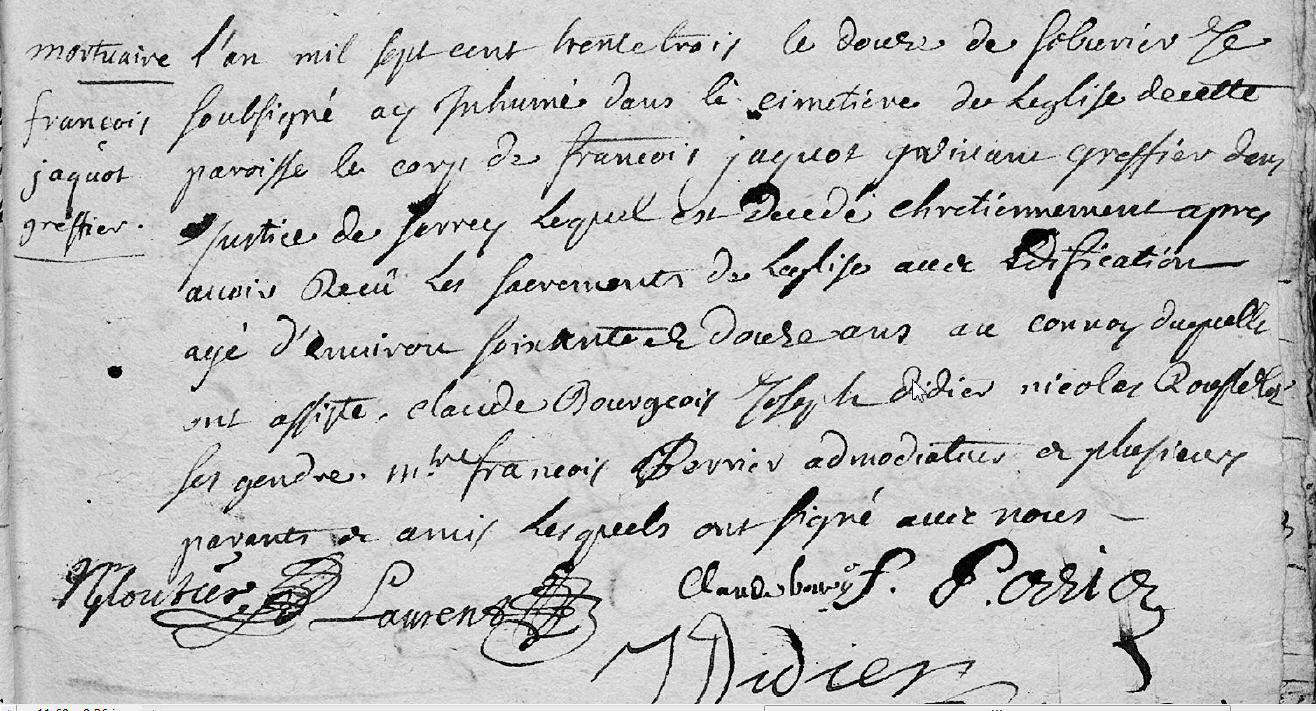 mortuaire
françois
jaquot
greffier.
l'an mil sept cent trente trois le douze de febvrier Je
soubsigné ay Inhumé dans le cimetiere de Leglise de cette
paroisse le corps de francois jaquot vivant greffier dans
Justice de serrey Lequel est Decedé chretiennement apres
avoir Receû Les sacrements de Leglise avec Edification
agé d'Environ soixante et douze ans au convoy duquelle
ont assisté. claude Bourgeois Joseph didier nicolas
ses gendre. mtre francois Perrier admodiateur et plusieurs
parants et amis Lesquels ont signé avec nous
Laurens
Claude bourg f. Perrier
J Didier